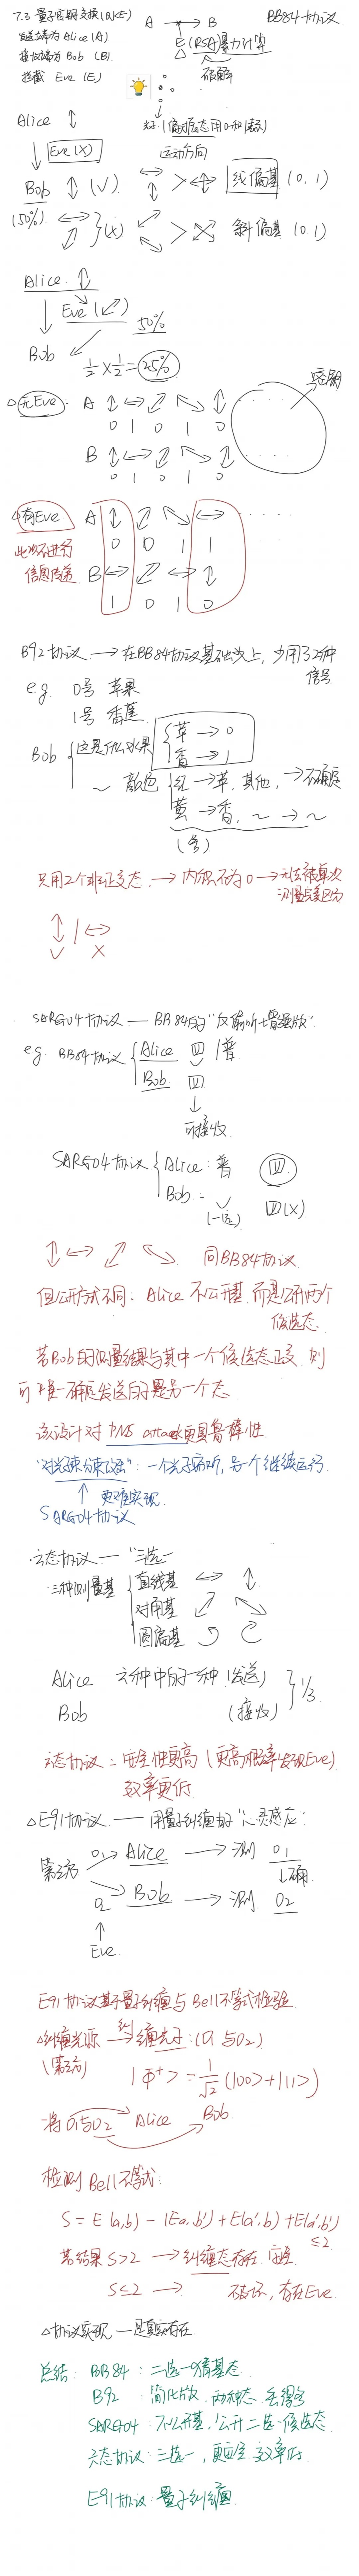 7.3 量子密钥交换(QKE)
发送端为 Alice (A)
接收端为 Bob (B)
拦截 Eve (E)
A → B
E (RSA) 暴力计算
破解
BB84 协议
光子 (偏振态用0和1表示)
运动方向
Alice ↕
Eve (X)
Bob ↕ (√)
(50%) ↔ ⤢ } (X)
线偏基 (0, 1)
斜偏基 (0, 1)
Alice ↕
Eve (⤢)
50%
Bob
1/2 × 1/2 = 25%
△ 无Eve: A ↕ ↔ ⤢ ⤡ ↕ ····
0 1 0 1 0
B ↕ ↔ ⤢ ⤡ ↕
0 1 0 1 0
密钥
△ 有Eve A ↕ ⤢ ⤡ ↔ ····
0 0 1 1
此次不进行
信息传送
B ↔ ⤢ ↔ ↕
1 0 1 0
B92 协议 → 在BB84协议基础上, 少用了2种
信号
e.g. 0号 苹果
1号 香蕉
Bob { 这是什么水果 { 苹 → 0
香 → 1
~ 颜色 { 红 → 苹, 其他, → 不确定
黄 → 香, ~ → ~
只用2个非正交态. → 内积不为0 → 无法被单次
测量完美区分
↕ / ↔
√ X
SARG04 协议 — BB84的“反窃听增强版”
e.g. BB84 协议 { Alice
Bob
可接收
SARG04 协议 { Alice:
Bob:
↕ ↔ ⤢ ⤡ 同BB84协议
但公开方式不同: Alice 不公开基 而是公开两个
候选态
若Bob的测量结果与其中一个候选态正交, 则
可唯一确定发送的是另一个态
该设计对 PNS attack 更具鲁棒性
“对光束分束攻击”: 一个光子窃听, 另一个继续运行
↑ 更难实现
SARG04协议
六态协议 — “三选一
三种测量基 { 直线基 ↔ ↕
对角基 ⤢ ⤡
圆偏基
Alice 六种中的一种 (发送)
Bob (接收) } 1/3
六态协议 = 安全性更高 (更高概率发现Eve)
效率更低
△ E91协议 — 用量子纠缠的“心灵感应”
第三方 O1 → Alice → 测 O1
↓ 确
O2 → Bob → 测 O2
↑
Eve
E91协议基于量子纠缠与Bell不等式检验
△ 纠缠光源 → 纠缠光子: (O1与O2)
(第三方)
|Φ⁺> = 1/√2 (|00> + |11>)
将 O1与O2 Alice Bob
检测Bell不等式:
S = E(a,b) - (E(a,b') + E(a',b) + E(a',b')
≤2
若结果 S>2 → 纠缠态存在, 安全
S≤2 → 破坏, 存在Eve
△ 协议实现 — 是真实存在
总结: BB84: 二选一猜基态
B92: 简化版, 两种态, 丢得多
SARG04: 不公开基, 公开二选一候选态
六态协议: 三选一, 更安全, 效率低
E91协议: 量子纠缠